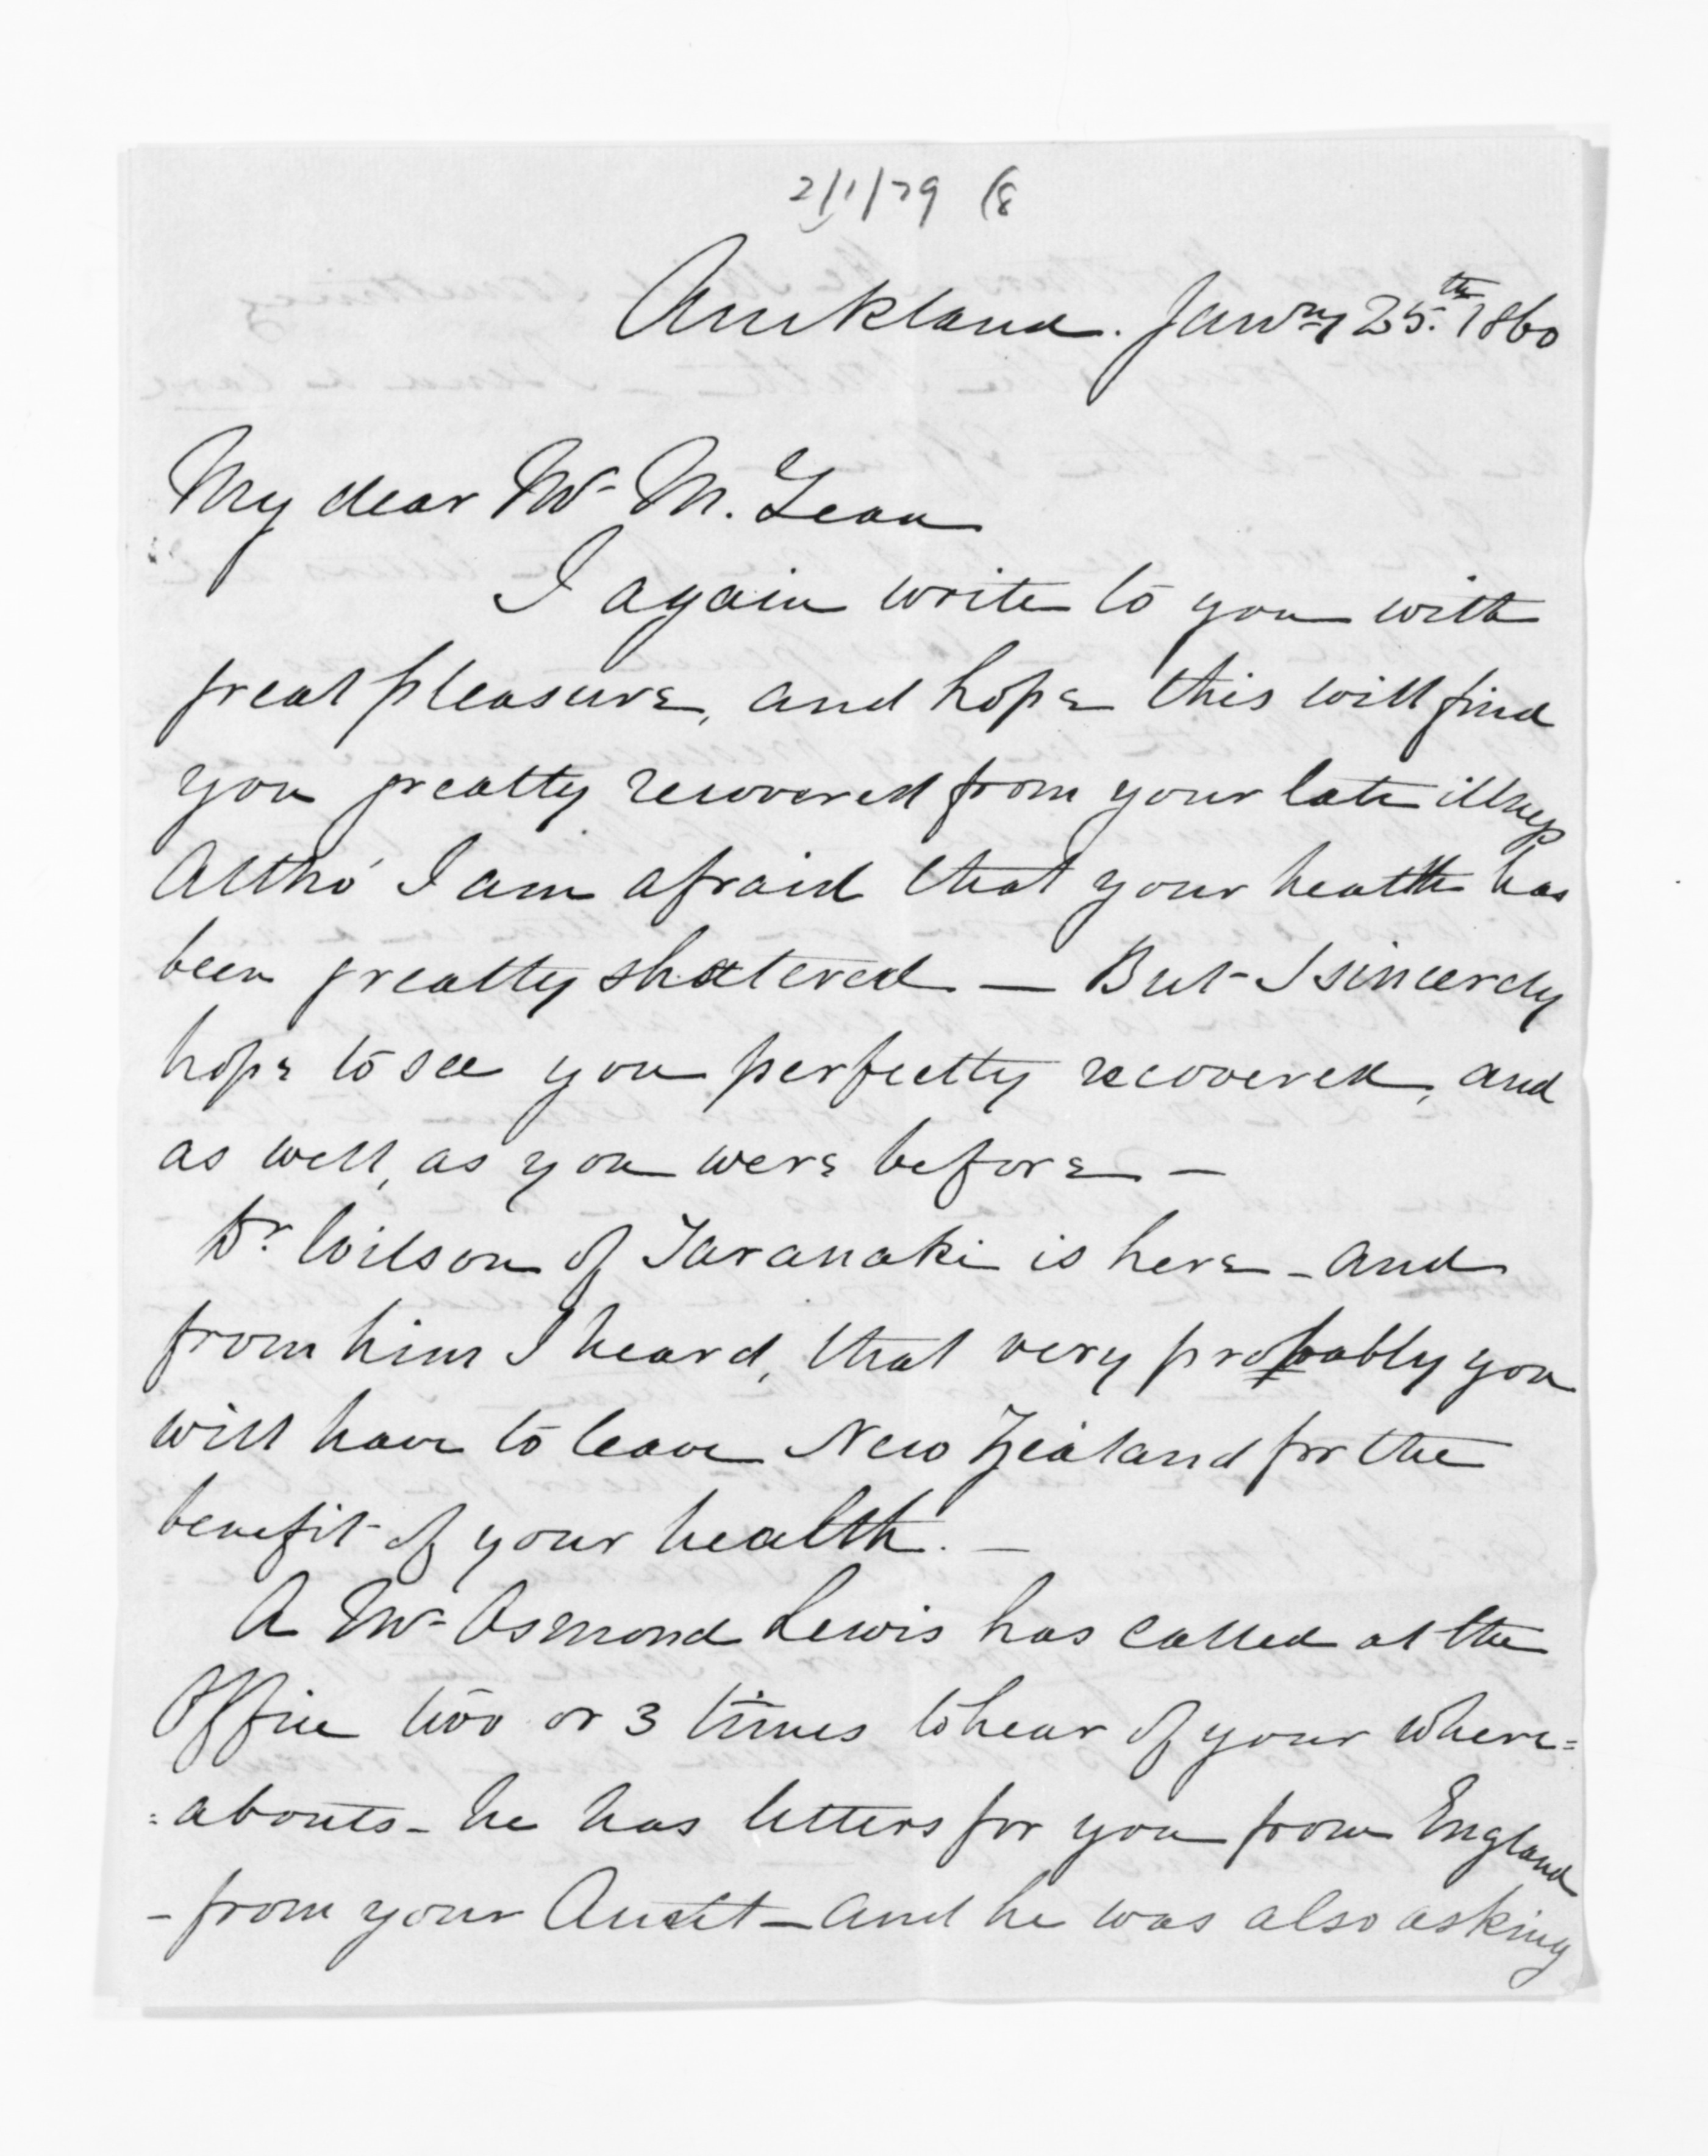 2/1/79 (8
Auckland. Janry 25.th 1860
My dear Mr M. Lean
I again write to you with
great pleasure, and hope this will find
you greatly recovered from your late illness
Altho' I am afraid that your health has
been greatly shattered — But I sincerely
hope to see you perfectly recovered, and
as well, as you were before —
Dr. Wilson of Taranaki is here - and
from him I heard, that very probably you
will have to leave New Zealand for the
benefit of your health. —
A Mr Osmond Lewis has called at the
Office two or 3 times to hear of your where=
=abouts - he has letters for you from England
- from your Aunt - and he was also asking